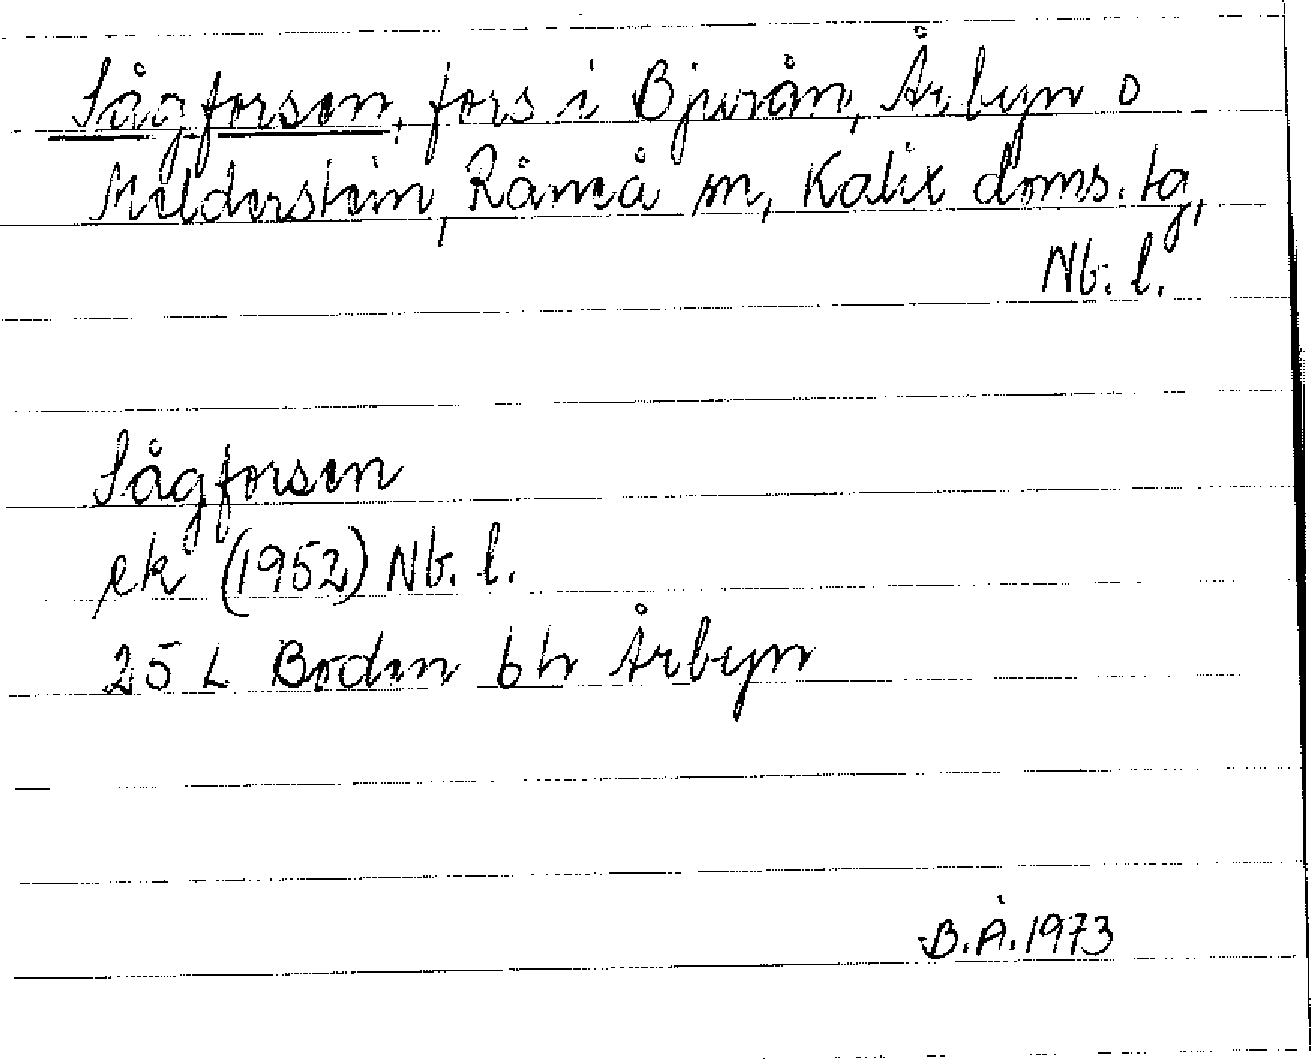 Sågforsen, fors i Bjurån, Årbyn o
Melderstein, Råneå sn, Kalix doms. tg,
Nb. l.
Sågforsen
ek (1952) Nb. l.
25 L Boden bh Årbyn
B.Å. 1973